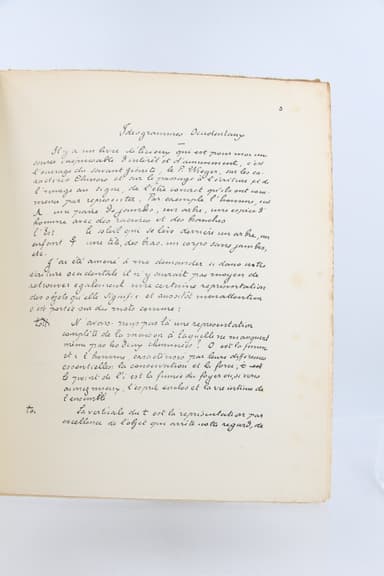 3
Idéogrammes Occidentaux
Il y a un livre de lui qui est pour moi une
source inépuisable d'intérêt et d'amusement, c'est
l'ouvrage du savant jésuite, le P. Wieger, sur les ca-
ractères Chinois et sur le passage à l'écriture et de
l'image au signe, de l'être concret qu'ils ont com-
mencé par représenter. Par exemple l'homme, est
une paire de jambes, un arbre, une espèce d'
homme avec des racines et des branches
l'Est le soleil qui se lève derrière un arbre, un
enfant une tête, des bras, un corps sans jambes,
etc.
J'ai été amené à me demander si dans notre
écriture occidentale il n'y aurait pas moyen de
retrouver également une certaine représentation
des objets qu'elle signifie et aussitôt mon attention
s'est portée sur des mots comme :
toit. N'avons-nous pas là une représentation
complète de la maison à laquelle ne manquent
même pas les deux cheminées ? O est la femme
et i l'homme, caractérisés par leurs différences
essentielles : la conservation et la force, t est
le point de l'i est la fumée du foyer ou, si vous
aimez mieux, l'esprit enclos et la vie intime de
l'ensemble
La verticale du t est la représentation par
excellence de l'objet qui arrête notre regard, de